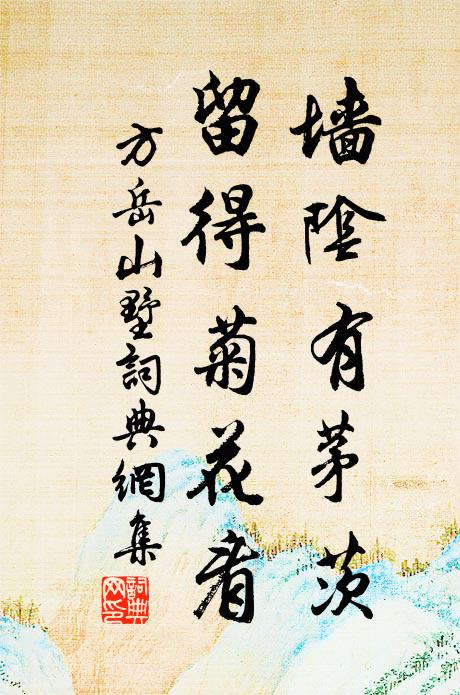 墙陰有茅茨
留得菊花看
方岳山墅詞典網集
詞典网印